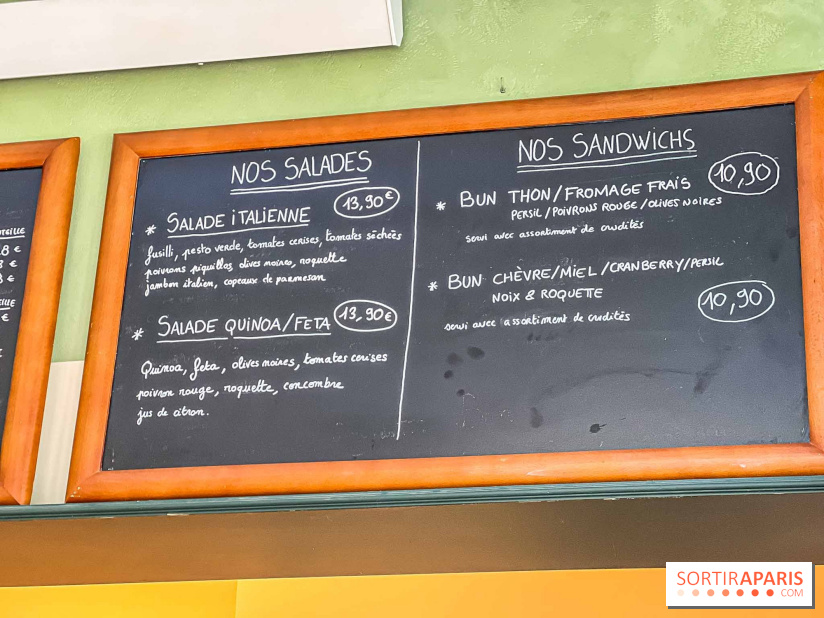 NOS SALADES
* SALADE iTALiENNE 13,90€
fusilli, pesto verde, tomates cerises, tomates séchées
poivrons piquillos, olives noires, roquette
jambon italien, copeaux de parmesan
* SALADE QUiNOA/FETA 13,90€
Quinoa, feta, olives noires, tomates cerises
poivron rouge, roquette, concombre
jus de citron.
NOS SANDWiCHS
* BUN THON/FROMAGE FRAiS 10,90
PERSiL/POiVRONS ROUGE/OLiVES NOiRES
servi avec assortiment de crudités
* BUN CHÈVRE/MiEL/CRANBERRY/PERSiL
NOiX & ROQUETTE 10,90
servi avec assortiment de crudités
8 €
€
SORTIRAPARIS
.COM